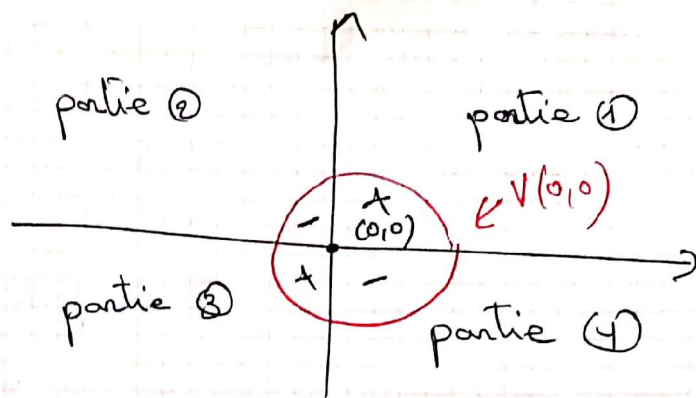 partie ②
partie ①
V(0,0)
+
-
(0,0)
+
-
partie ③
partie ④